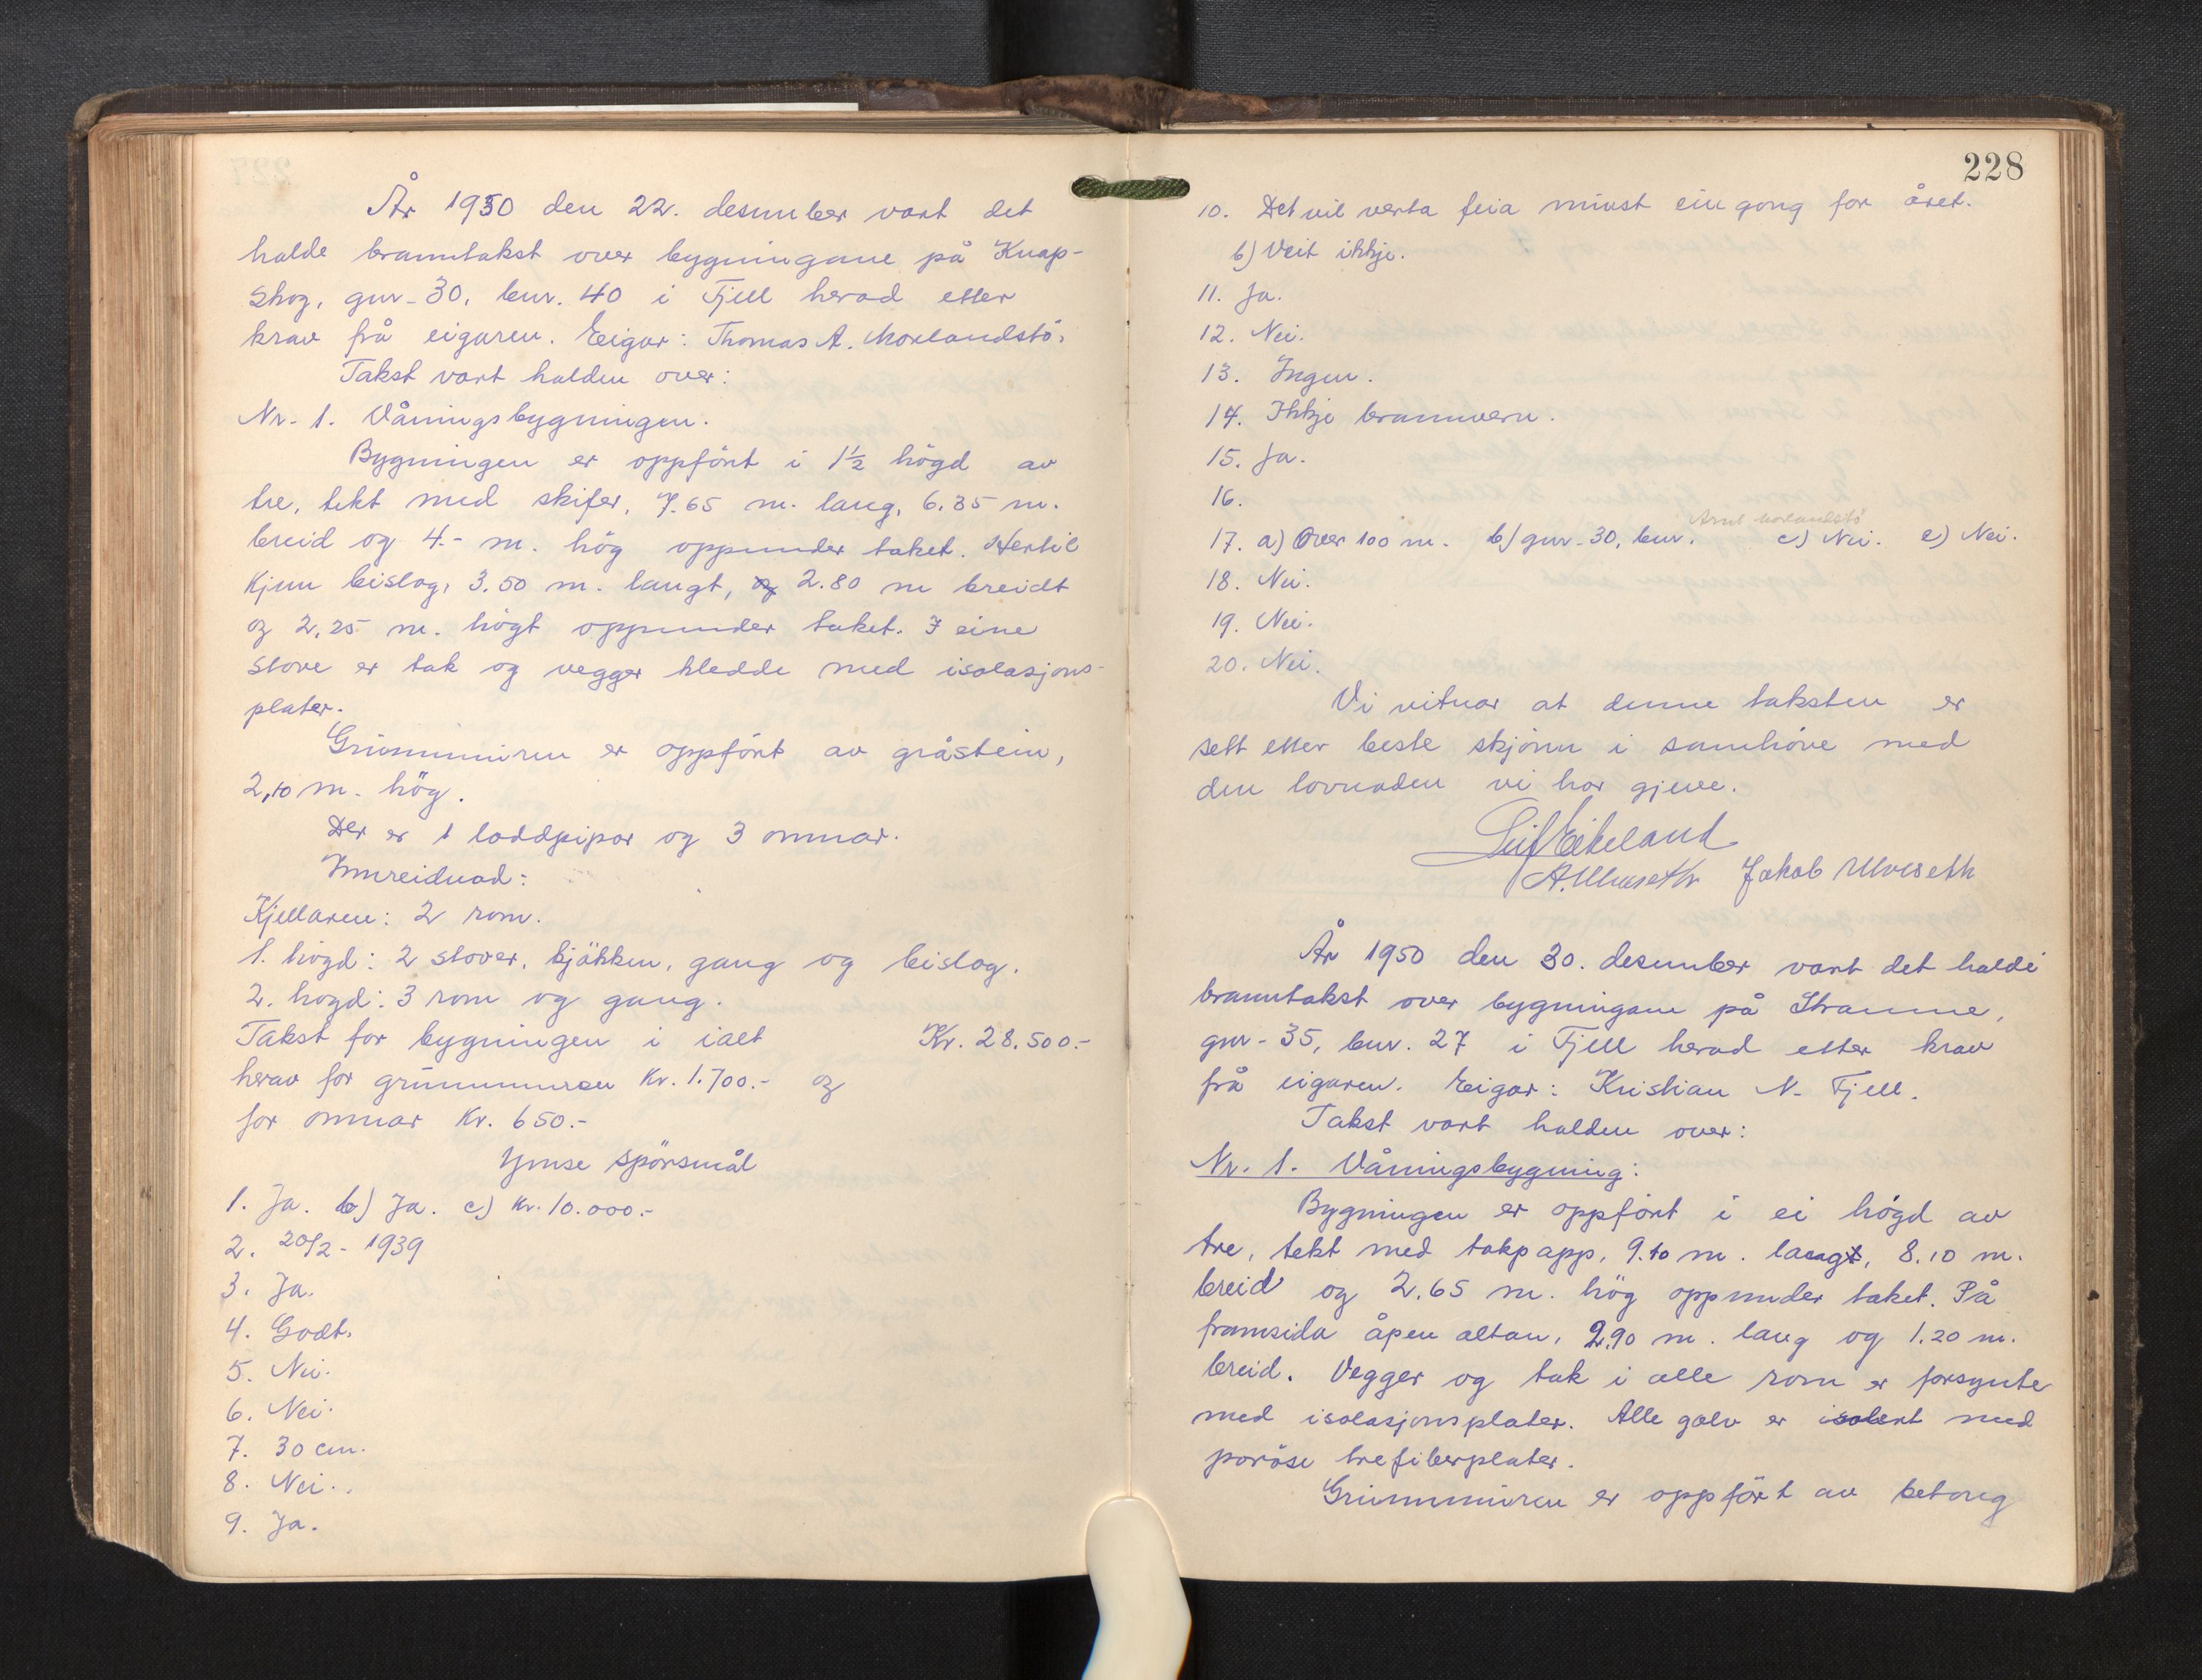 År 1950 den 22. desember vart det
halde branntakst over bygningane på Knap-
skog, gnr. 30, bnr. 40 i Fjell herad etter
krav frå eigaren. Eigar: Thomas A. Morlandstö.
Takst vart halden over:
Nr. 1. Våningsbygningen.
Bygningen er oppfört i 1½ högd av
tre, tekt med skifer, 7.65 m. lang, 6.35 m.
breid og 4.- m. hög oppunder taket. Hertil
kjem bislag, 3.50 m. langt, og 2.80 m breidt
og 2.25 m. högt oppunder taket. I eine
stove er tak og vegger kledde med isolasjons-
plater.
Grunnmuren er oppfört av gråstein,
2,10 m. hög.
Der er 1 loddpipor og 3 omnar.
Innreidnad:
Kjellaren: 2 rom.
1. högd: 2 stover, kjökken, gang og bislag.
2. högd: 3 rom og gang.
Takst for bygningen i ialt Kr. 28.500.-
herav for grunnmuren Kr. 1.700.- og
for omnar Kr. 650.-
Ymse spörsmål
1. Ja. b) Ja. c) Kr. 10.000.-
2. 20/2- 1939
3. Ja.
4. Godt.
5. Nei.
6. Nei.
7. 30 cm.
8. Nei.
9. Ja.
228
10. Det vil verta feia minst ein gong for året.
b) Veit ikkje.
11. Ja.
12. Nei.
13. Ingen.
14. Ikkje brannvern.
15. Ja.
16.
Arnt Morlandstö
17. a) Over 100 m. b) gnr. 30, bnr. c) Nei. e) Nei.
18. Nei.
19. Nei.
20. Nei.
Vi vitnar at denne taksten er
sett etter beste skjönn i samhöve med
den lovnaden vi har gjeve.
Leif Eikeland
A. Ulveseth Jakob Ulveseth
År 1950 den 30. desember vart det halde
branntakst over bygningane på Straume,
gnr. 35, bnr. 27 i Fjell herad etter krav
frå eigaren. Eigar: Kristian N. Fjell.
Takst vart halden over:
Nr. 1. Våningsbygning:
Bygningen er oppfört i ei högd av
tre, tekt med takpapp, 9.10 m. lang, 8.10 m.
breid og 2.65 m. hög oppunder taket. På
framsida åpen altan, 2.90 m. lang og 1.20 m.
breid. Vegger og tak i alle rom er forsynte
med isolasjonsplater. Alle golv er isolert med
poröse trefiberplater.
Grunnmuren er oppfört av betong